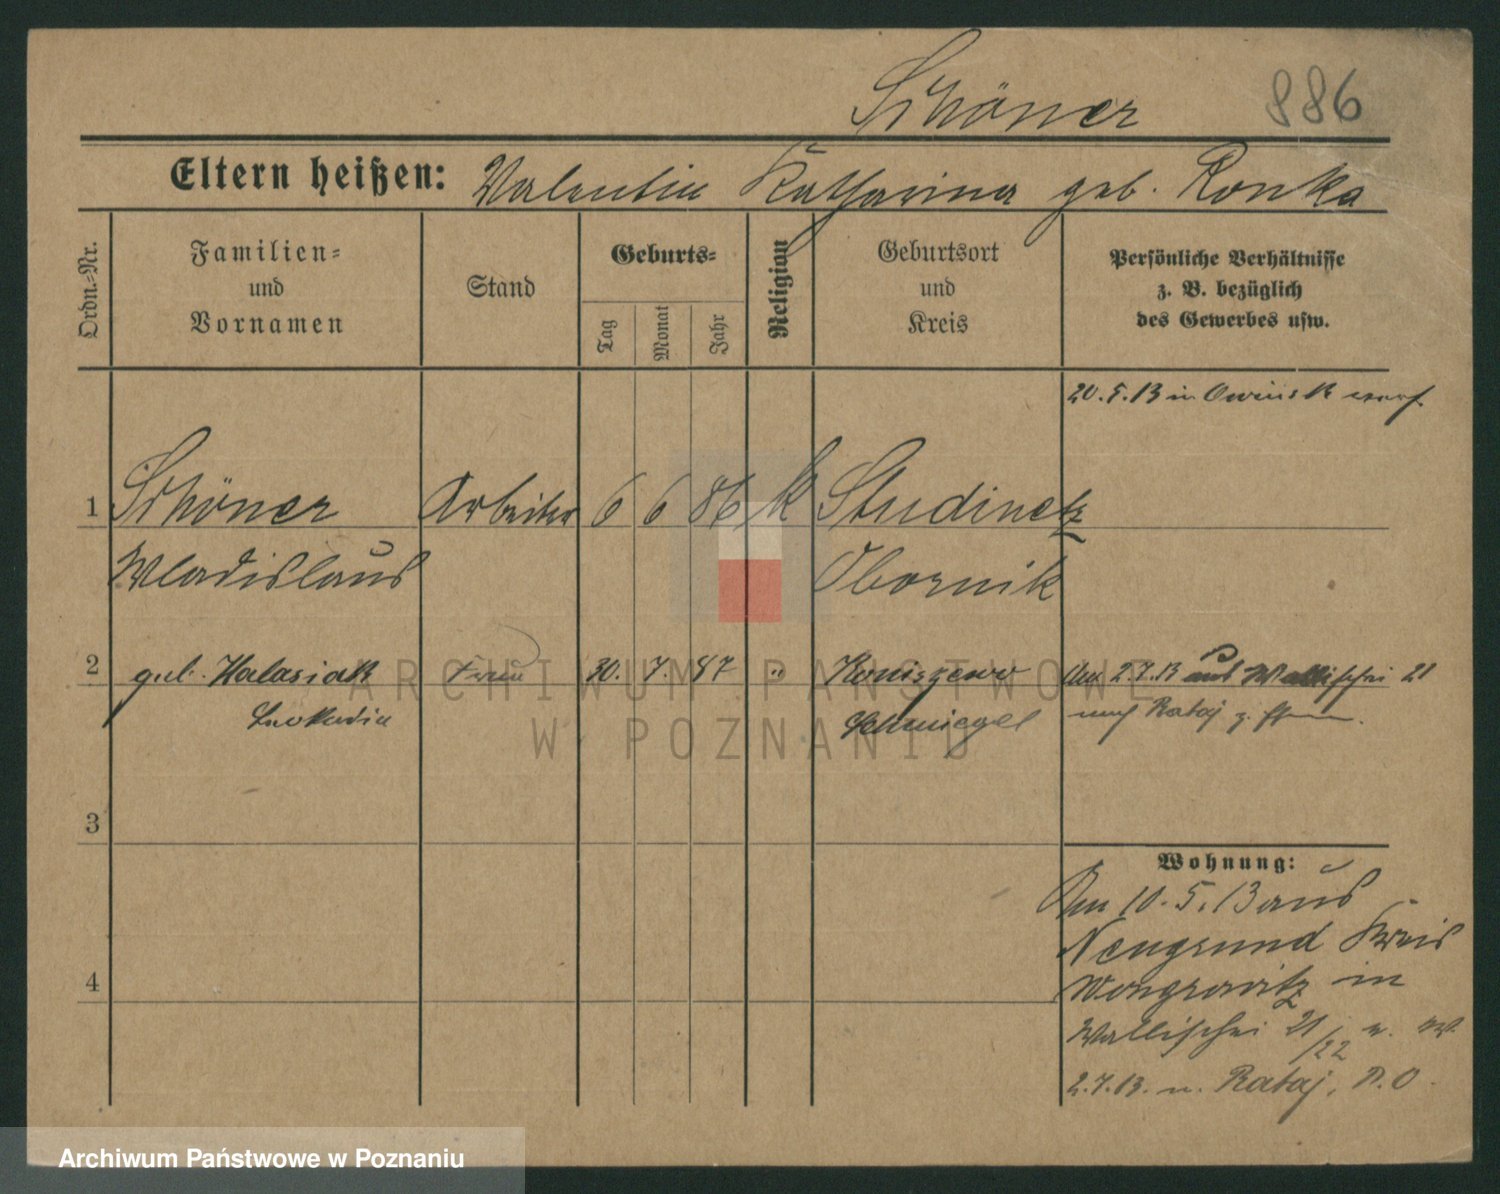 Schöner 886
Eltern heißen: Valentin Katharina geb. Ronka
Ordn.-Nr.
Familien-
und
Vornamen
Stand
Geburts-
Tag
Monat
Jahr
Religion
Geburtsort
und
Kreis
Persönliche Verhältnisse
z. B. bezüglich
des Gewerbes usw.
20.5.13 in Owinsk
1 Schöner Arbeiter 6 6 86 k Studinetz
Wladislaus Obornik
2 geb. Halasiak Frau 30. 7. 87 " Koniszewo
Leokadia Schmiegel
2.7.13 aus Wallischei 21
nach Rataj z.
3
4
Wohnung:
Am 10.5.13 aus
Neugrund Kreis
Wongrowitz in
Wallischei 21/22
2.7.13. n. Rataj, P.O.
ARCHIWUM PAŃSTWOWE
W POZNANIU
Archiwum Państwowe w Poznaniu